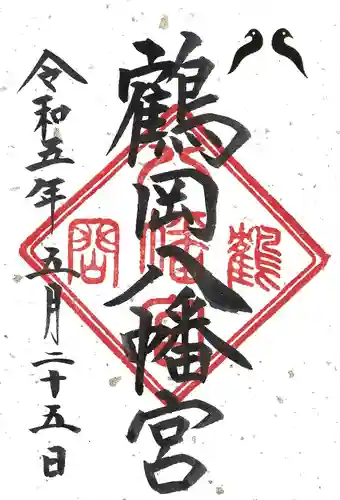 鶴岡八幡宮
令和五年五月二十五日
鶴岡
八幡宮